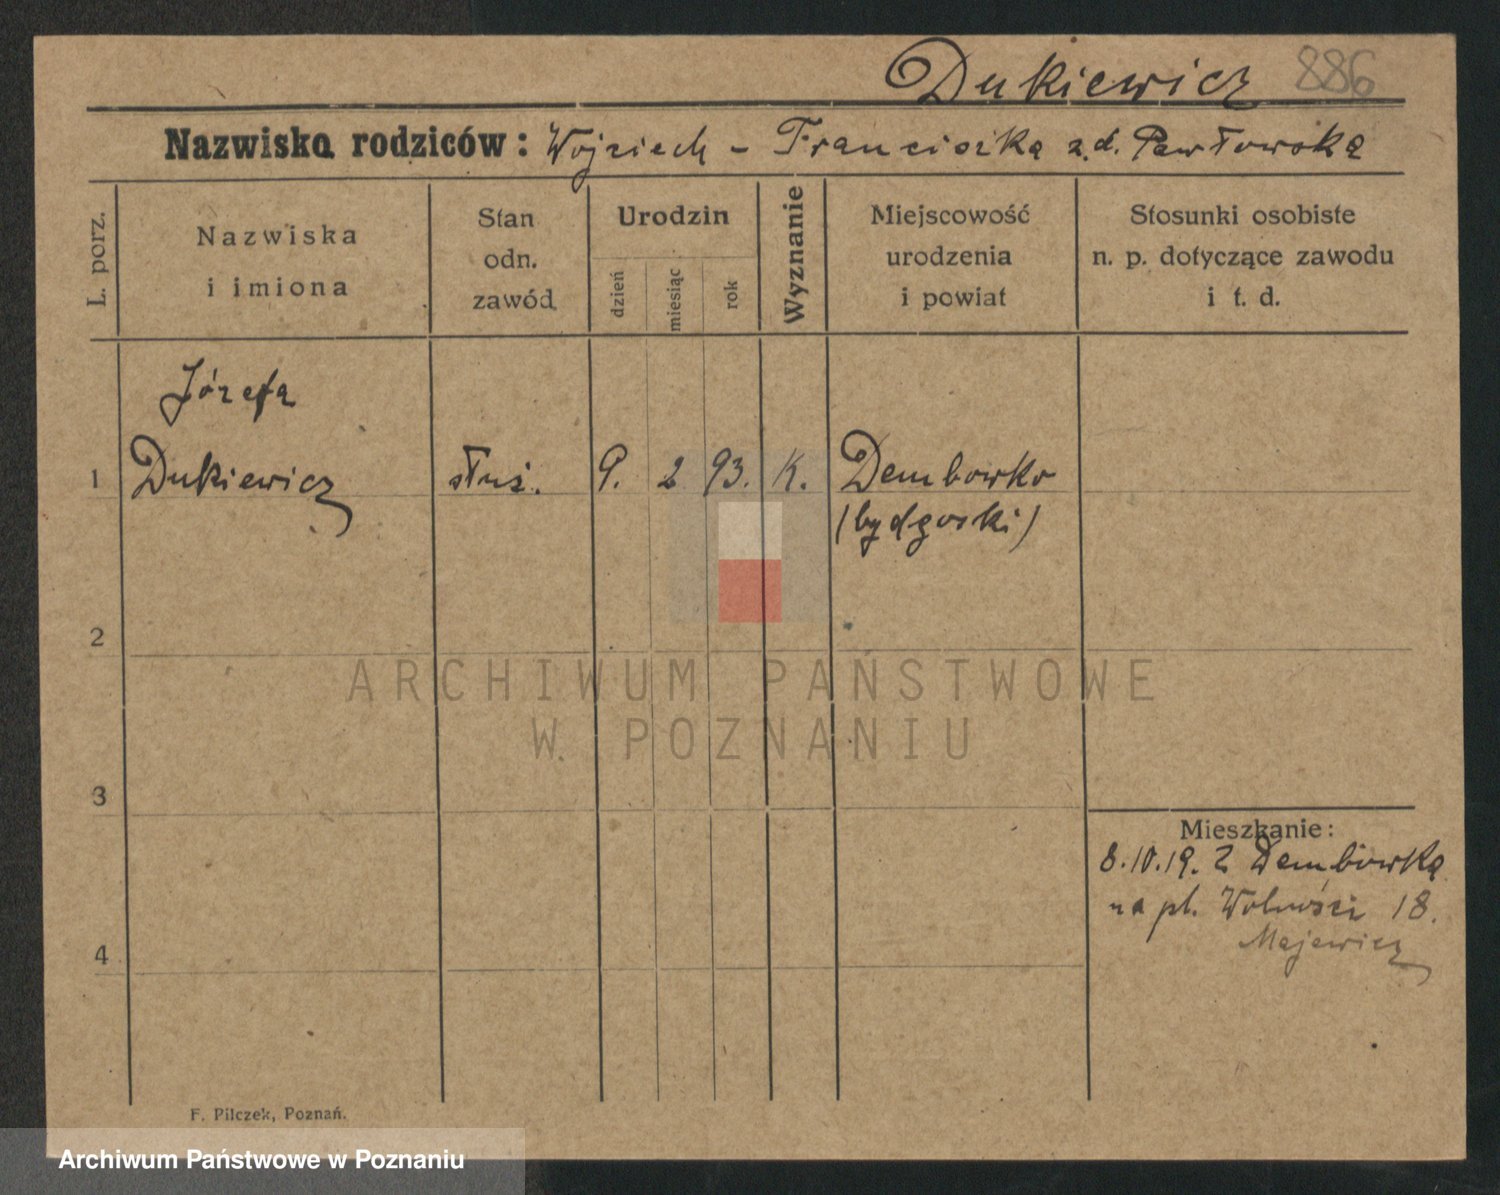 Dukiewicz 886
Nazwiska rodziców: Wojciech - Franciszka z.d. Pawłowska
L. porz.
Nazwiska
i imiona
Stan
odn.
zawód
Urodzin
dzień
miesiąc
rok
Wyznanie
Miejscowość
urodzenia
i powiat
Stosunki osobiste
n. p. dotyczące zawodu
i t. d.
Józefa
1 Dukiewicz służ. 9. 2 93. K. Dembowko
(bydgoski)
2
3
4
Mieszkanie:
8.10.19. z Dembowka
na pl. Wolności 18.
Majewicz
F. Pilczek, Poznań.
ARCHIWUM PAŃSTWOWE
W POZNANIU
Archiwum Państwowe w Poznaniu